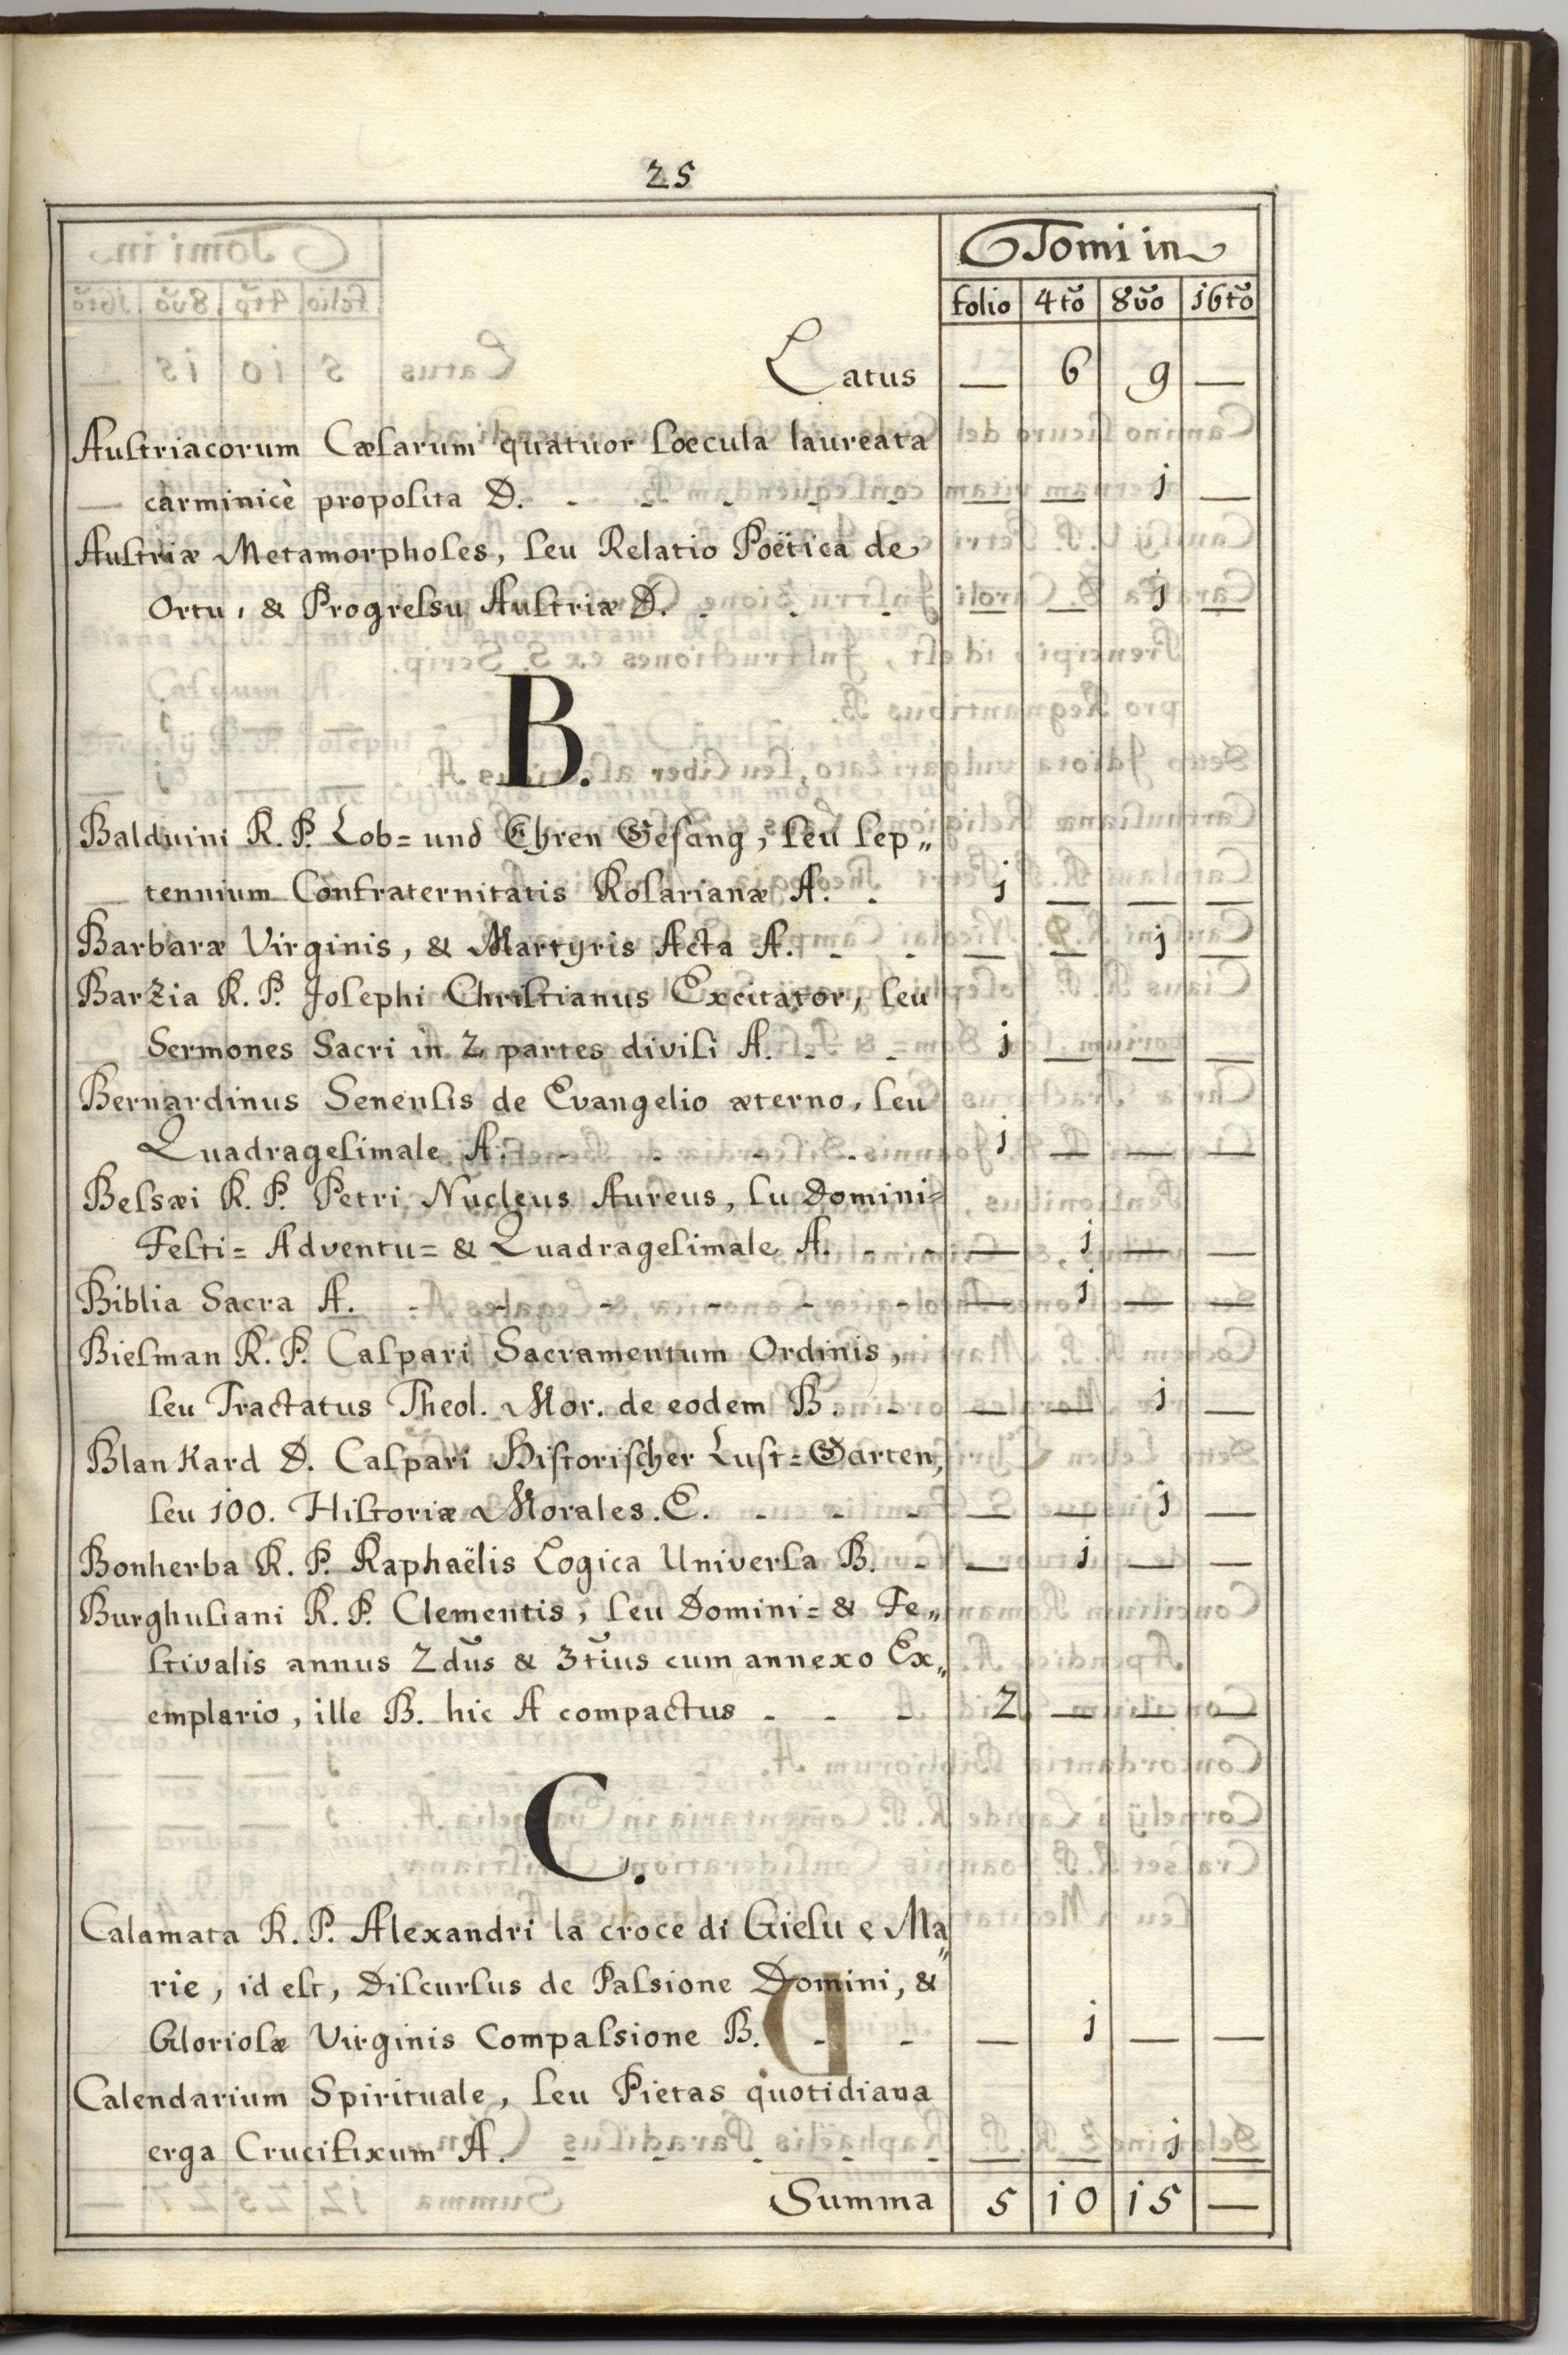 25
Tomi in
folio 4tõ 8võ 16tõ
Latus — 6 9 —
Auſtriacorum Cæſarum quatuor ſoecula laureata
carminicè propoſita D. - - - - - — — 1 —
Auſtriæ Metamorphoſes, ſeu Relatio Poëtica de
Ortu, & Progreſsu Auſtriæ D. - - - — — 1 —
B.
Balduini R. P. Lob= und Ehren Geſang, ſeu ſep„
tennium Confraternitatis Roſarianæ A. - 1 — — —
Barbaræ Virginis, & Martyris Acta A. - - — — 1 —
Barzia R. P. Joſephi Chriſtianus Excitator, ſeu
Sermones Sacri in 2 partes diviſi A. - - 1 — — —
Bernardinus Senenſis de Evangelio æterno, ſeu
Quadrageſimale A. - - - - 1 — — —
Belsæi R. P. Petri Nucleus Aureus, ſu Domini=
Feſti= Adventu= & Quadrageſimale A. - - — 1 — —
Biblia Sacra A. - - - - - - — 1 — —
Bielman R. P. Caſpari Sacramentum Ordinis,
ſeu Tractatus Theol. Mor. de eodem B. - — — 1 —
Blankard D. Caſpari Hiſtoriſcher Luſt=Garten,
ſeu 100. Hiſtoriæ Morales. E. - - - — — 1 —
Bonherba R. P. Raphaëlis Logica Univerſa B. - — 1 — —
Burghuſiani R. P. Clementis, ſeu Domini= & Fe„
ſtivalis annus 2dũs & 3tĩus cum annexo Ex„
emplario, ille B. hic A compactus - - - 2 — — —
C.
Calamata R. P. Alexandri la croce di Gieſu e Ma„
rie, id eſt, Diſcurſus de Paſsione Domini, &
Glorioſæ Virginis Compaſsione B. - - — 1 — —
Calendarium Spirituale, ſeu Pietas quotidiana
erga Crucifixum A. - - - - - — — 1 —
Summa 5 10 15 —